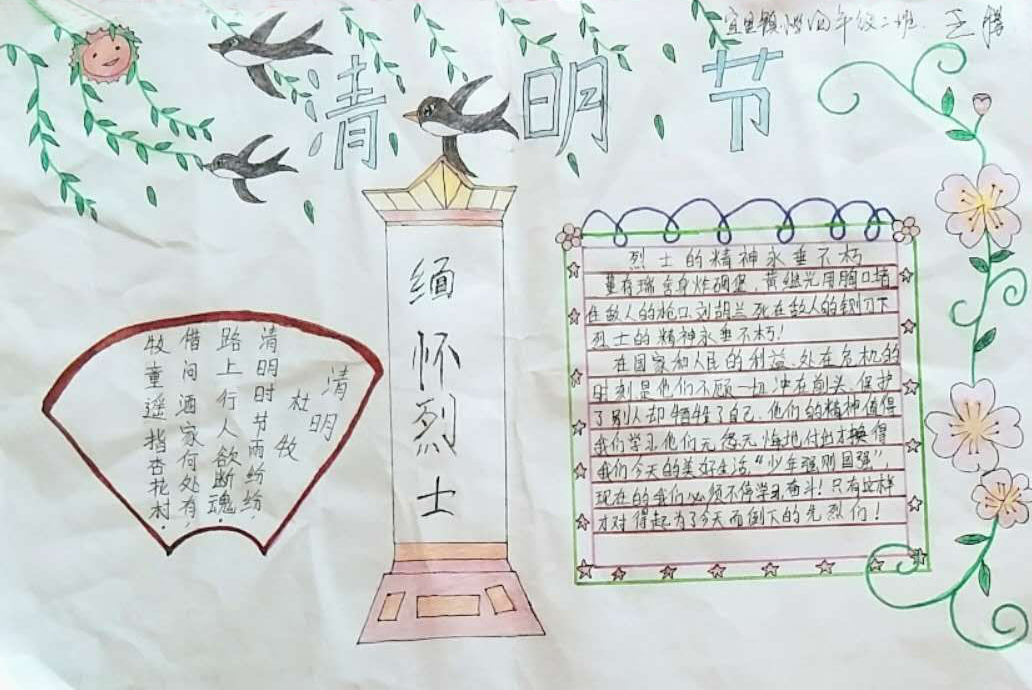 宜里镇小学四年级二班 王
清明节
缅怀烈士
清明
杜牧
清明时节雨纷纷,
路上行人欲断魂.
借问酒家何处有,
牧童遥指杏花村.
烈士的精神永垂不朽
董存瑞舍身炸碉堡,黄继光用胸口堵
住敌人的枪口,刘胡兰死在敌人的铡刀下
烈士的精神永垂不朽!
在国家和人民的利益、处在危机的
时刻是他们不顾一切冲在前头、保护
了别人却牺牲了自己、他们的精神值得
我们学习他们无怨无悔地付出才换得
我们今天的美好生活“少年强则国强”,
现在的我们必须不停学习奋斗!只有这样
才对得起为了今天而倒下的先烈们!